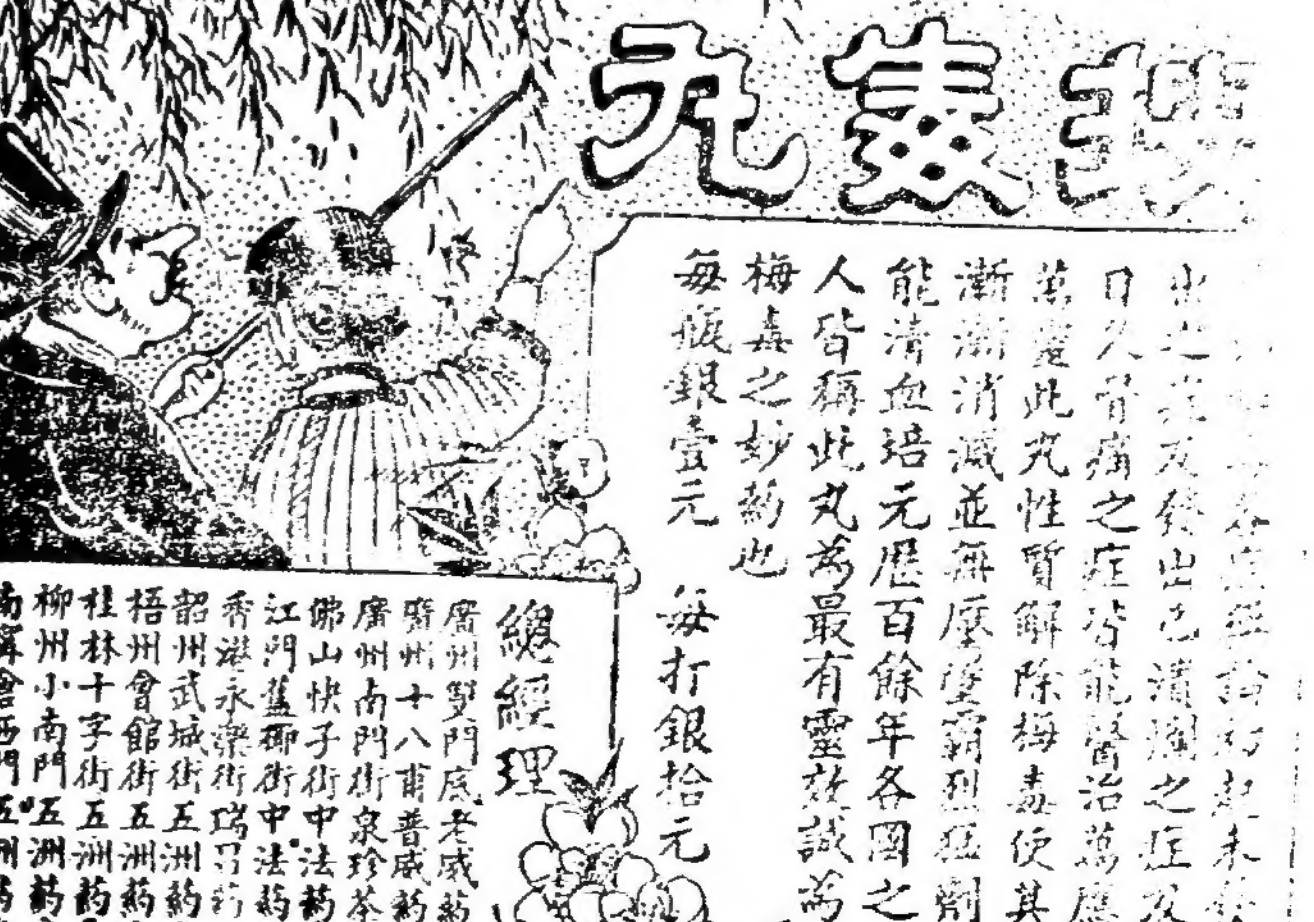 丸
出之症及發出已潰爛之症及
日久骨痛之症皆能醫治萬應
萬靈此丸性質解除梅毒使其
漸漸消滅並無壓墜霸烈猛劑
能清血培元歷百餘年各國之
人皆稱此丸為最有靈效誠為
梅毒之妙葯也
每瓶銀壹元 每打銀拾元
總經理
廣州雙門底老威葯
廣州十八甫普威葯
廣州南門街泉珍茶
佛山快子街中法葯
江門舊柳街中法葯
香港永樂街瑞昌葯
韶州武城街五洲葯
梧州會館街五洲葯
桂林十字街五洲葯
柳州小南門五洲葯
南寧倉西門五洲葯